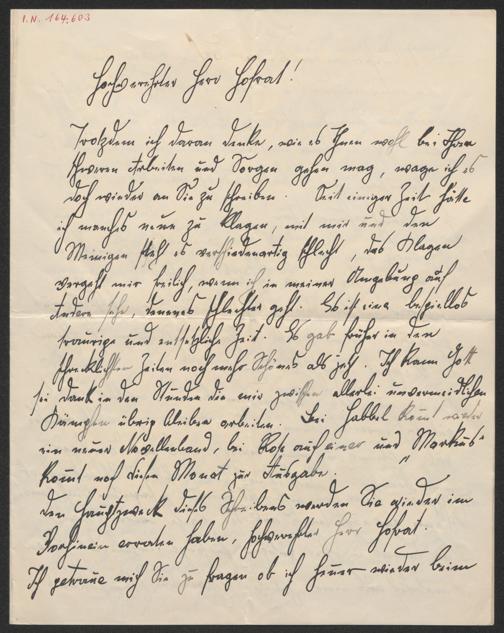 I.N. 164.603
Hochverehrter Herr Hofrat!
Trotzdem ich daran denke, wie es Ihnen wohl bei Ihren
schweren Arbeiten und Sorgen gehen mag, wage ich es
doch wieder an Sie zu schreiben. Seit einiger Zeit hätte
ich manches neue zu klagen, mit mir und den
Meinigen steht es verschiedenartig schlecht, das Klagen
vergeht mir freilich, wenn ich in meiner Umgebung auf
Andere sehe, denen es schlechter geht. Es ist eine beispiellos
traurige und entsetzliche Zeit. Es gab früher in den
schrecklichsten Zeiten noch mehr Schönes als jetzt. Ich kann Gott
sei Dank in den Stunden die mir zwischen allerlei unvermeidlichen
Kämpfen übrig bleiben arbeiten. Bei Habbel kommt wieder
ein neuer Novellenband, bei und Markus"
kommt noch diesen Monat zur Ausgabe.
Den Hauptzweck dieses Schreibens werden Sie wieder im
Vorhinein erraten haben, hochverehrter Herr Hofrat.
Ich getraue mich Sie zu fragen ob ich heuer wieder beim